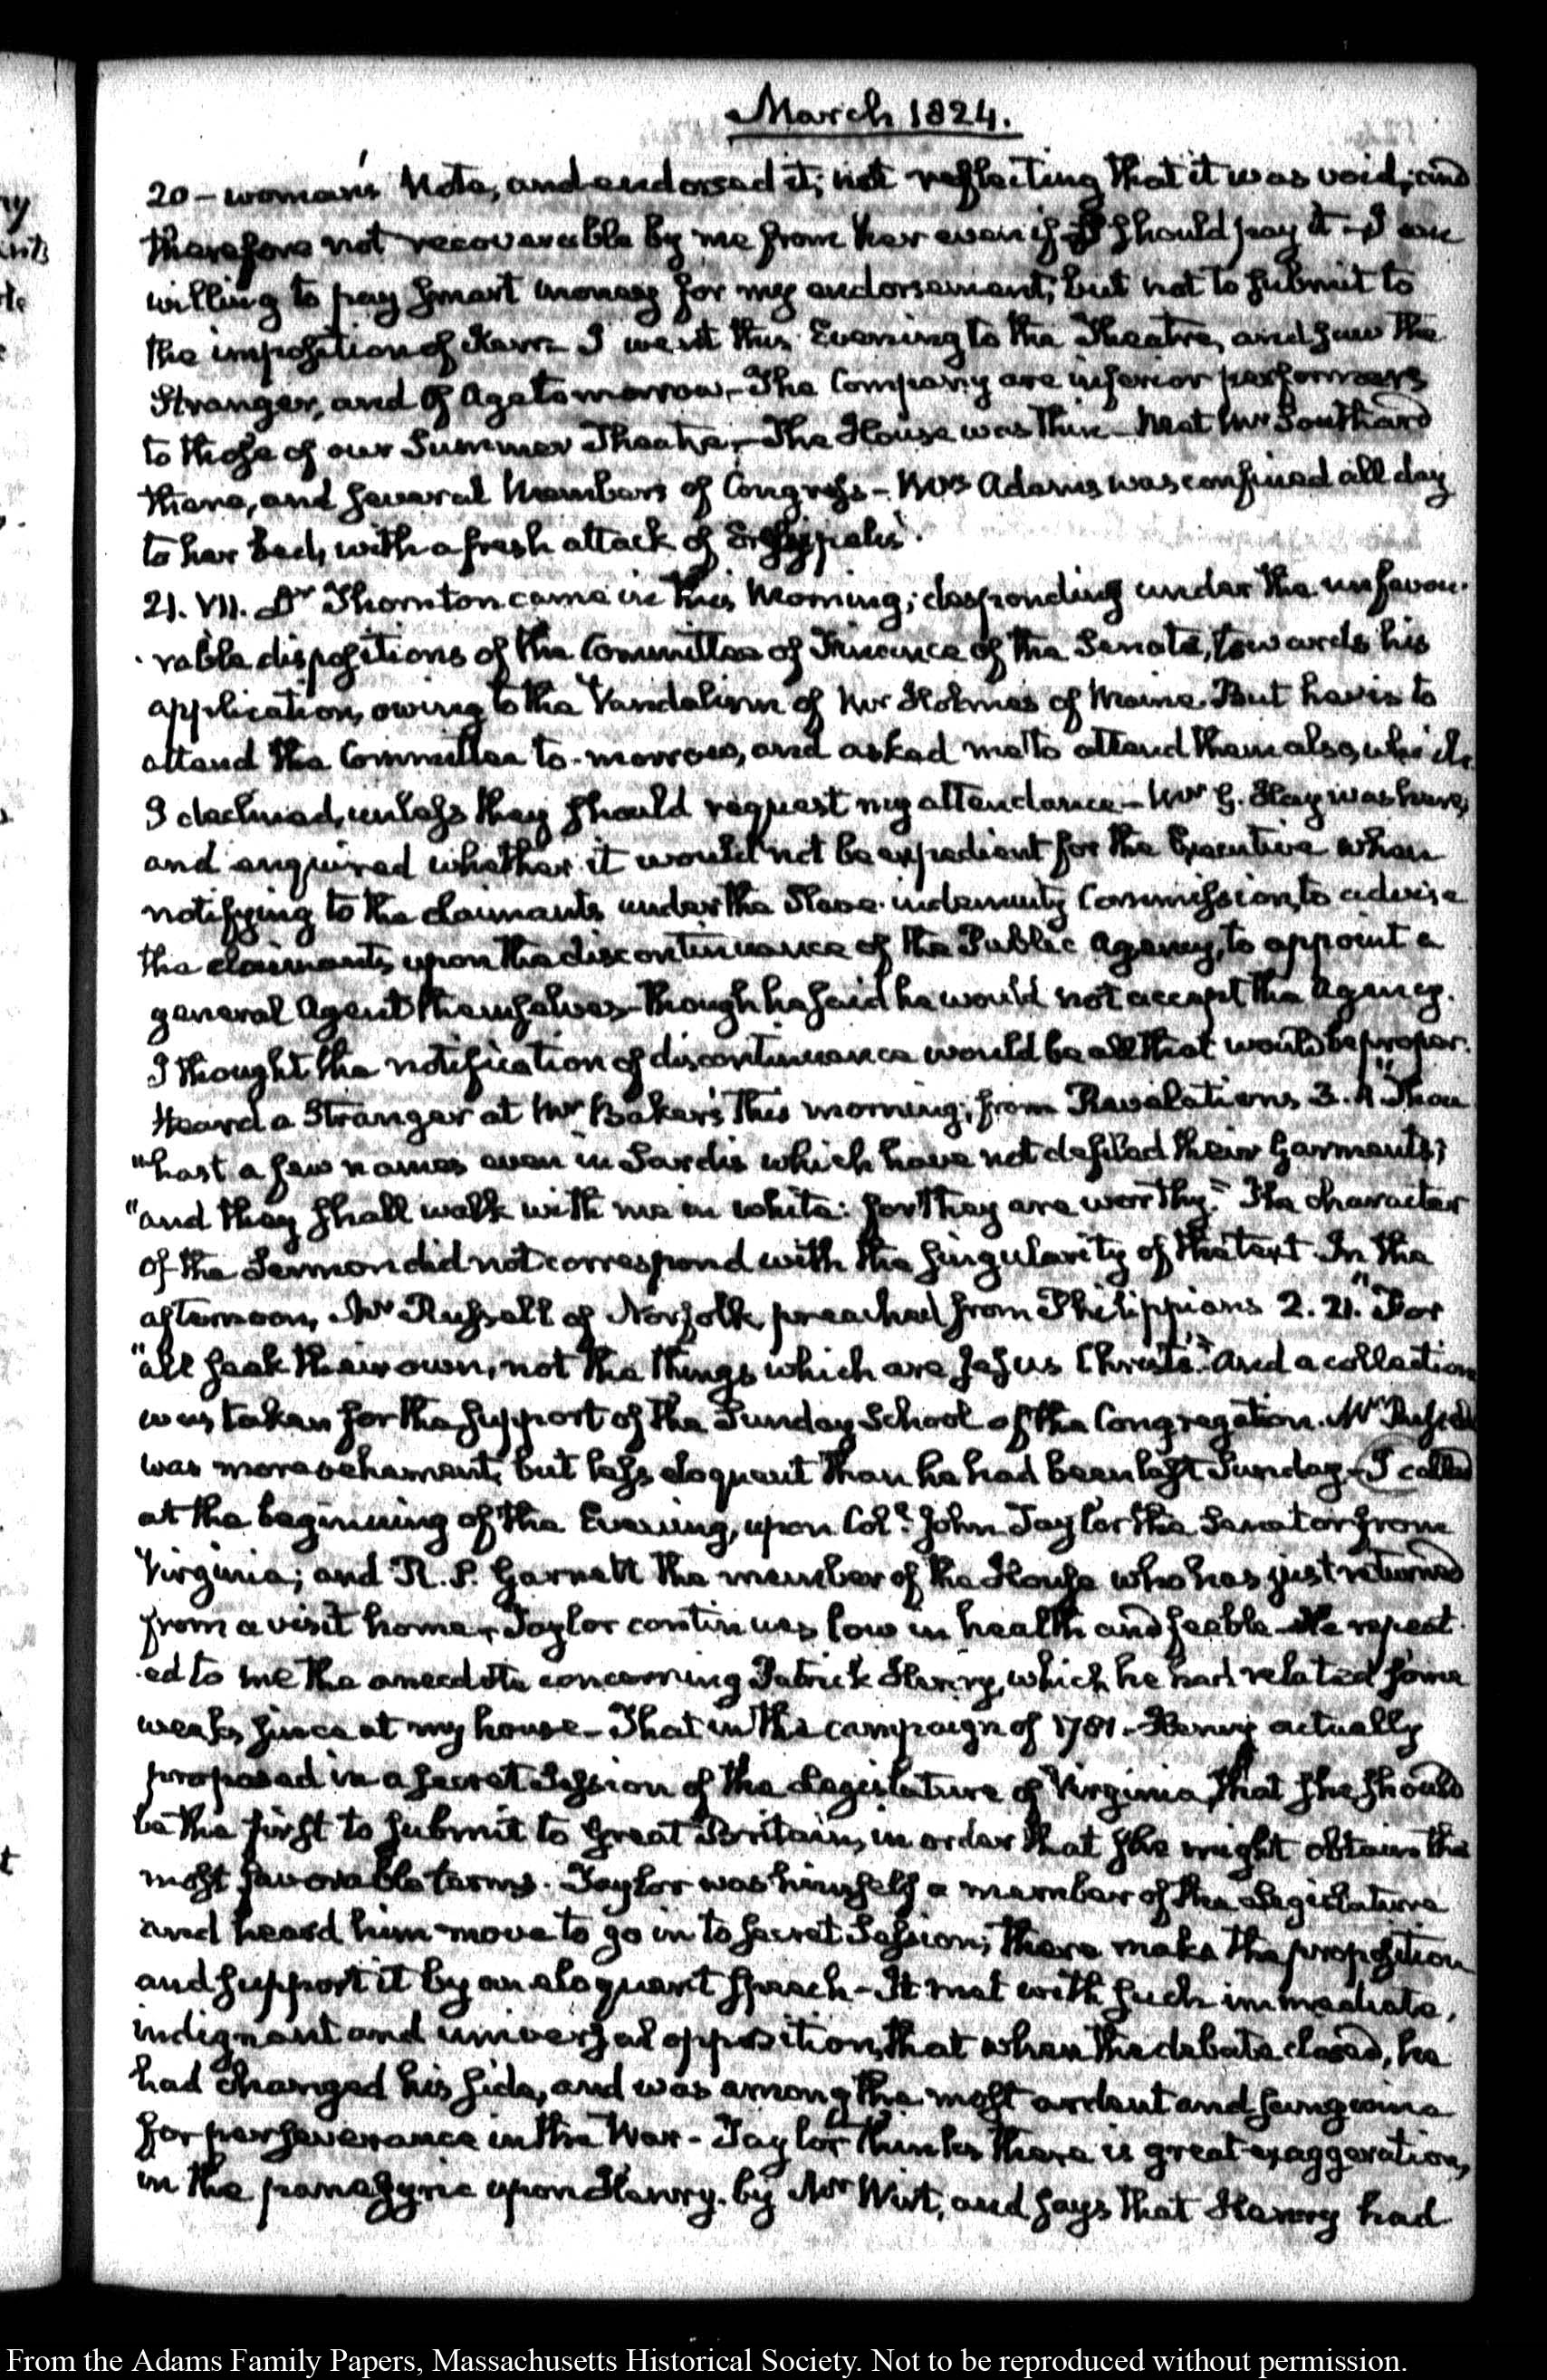 March 1824.
20 - woman's Note, and endorsed it; not reflecting that it was void; and
therefore not recoverable by me from her even if I should pay it - I am
willing to pay smart money for my endorsement; but not to submit to
the imposition of Kerr - I went this Evening to the Theatre, and saw the
Stranger, and Of Age to morrow - The Company are inferior performers
to those of our Summer Theatre - The House was thin - Met Mr Southard
there, and several Members of Congress - Mrs Adams was confined all day
to her bed, with a fresh attack of Erysipelas.
21. VII. Dr Thornton came in this Morning; desponding under the unfavou-
rable dispositions of the Committee of Finance of the Senate, towards his
application, owing to the Vandalism of Mr Holmes of Maine. But he is to
attend the Committee to-morrow, and asked me to attend them also, which
I declined, unless they should request my attendance - Mr G. Hay was here,
and enquired whether it would not be expedient for the Executive when
notifying to the claimants under the Slave-indemnity Commission, to advise
the claimants, upon the discontinuance of the Public Agency, to appoint a
general Agent themselves - though he said he would not accept the Agency.
I thought the notification of discontinuance would be all that would be proper.
Heard a Stranger at Mr Baker's this morning; from Revelations 3. 4 "Thou
"hast a few names even in Sardis which have not defiled their garments;
"and they shall walk with me in white: for they are worthy." The character
of the Sermon did not correspond with the singularity of the text. In the
afternoon, Mr Russell of Norfolk preached from Philippians 2. 21. "For
"all seek their own, not the things which are Jesus Christ's." And a collection
was taken for the support of the Sunday School of the Congregation. Mr Russell
was more vehement, but less eloquent than he had been last Sunday - I called
at the beginning of the Evening, upon Coll. John Taylor the Senator from
Virginia; and R. S. Garnett the member of the House who has just returned
from a visit home - Taylor continues low in health and feeble - He repeat-
ed to me the anecdote concerning Patrick Henry, which he had related some
weeks since at my house - That in the campaign of 1781 - Henry actually
proposed in a secret Session of the Legislature of Virginia, that she should
be the first to submit to Great Britain, in order that she might obtain the
most favorable terms. Taylor was himself a member of the Legislature
and heard him move to go in to secret Session; there make the proposition
and support it by an eloquent speech - It met with such immediate,
indignant and universal opposition, that when the debate closed, he
had changed his side, and was among the most ardent and sanguine
for perseverance in the War - Taylor thinks there is great exaggeration,
in the panegyric upon Henry by Mr Wirt, and says that Henry had
From the Adams Family Papers, Massachusetts Historical Society. Not to be reproduced without permission.